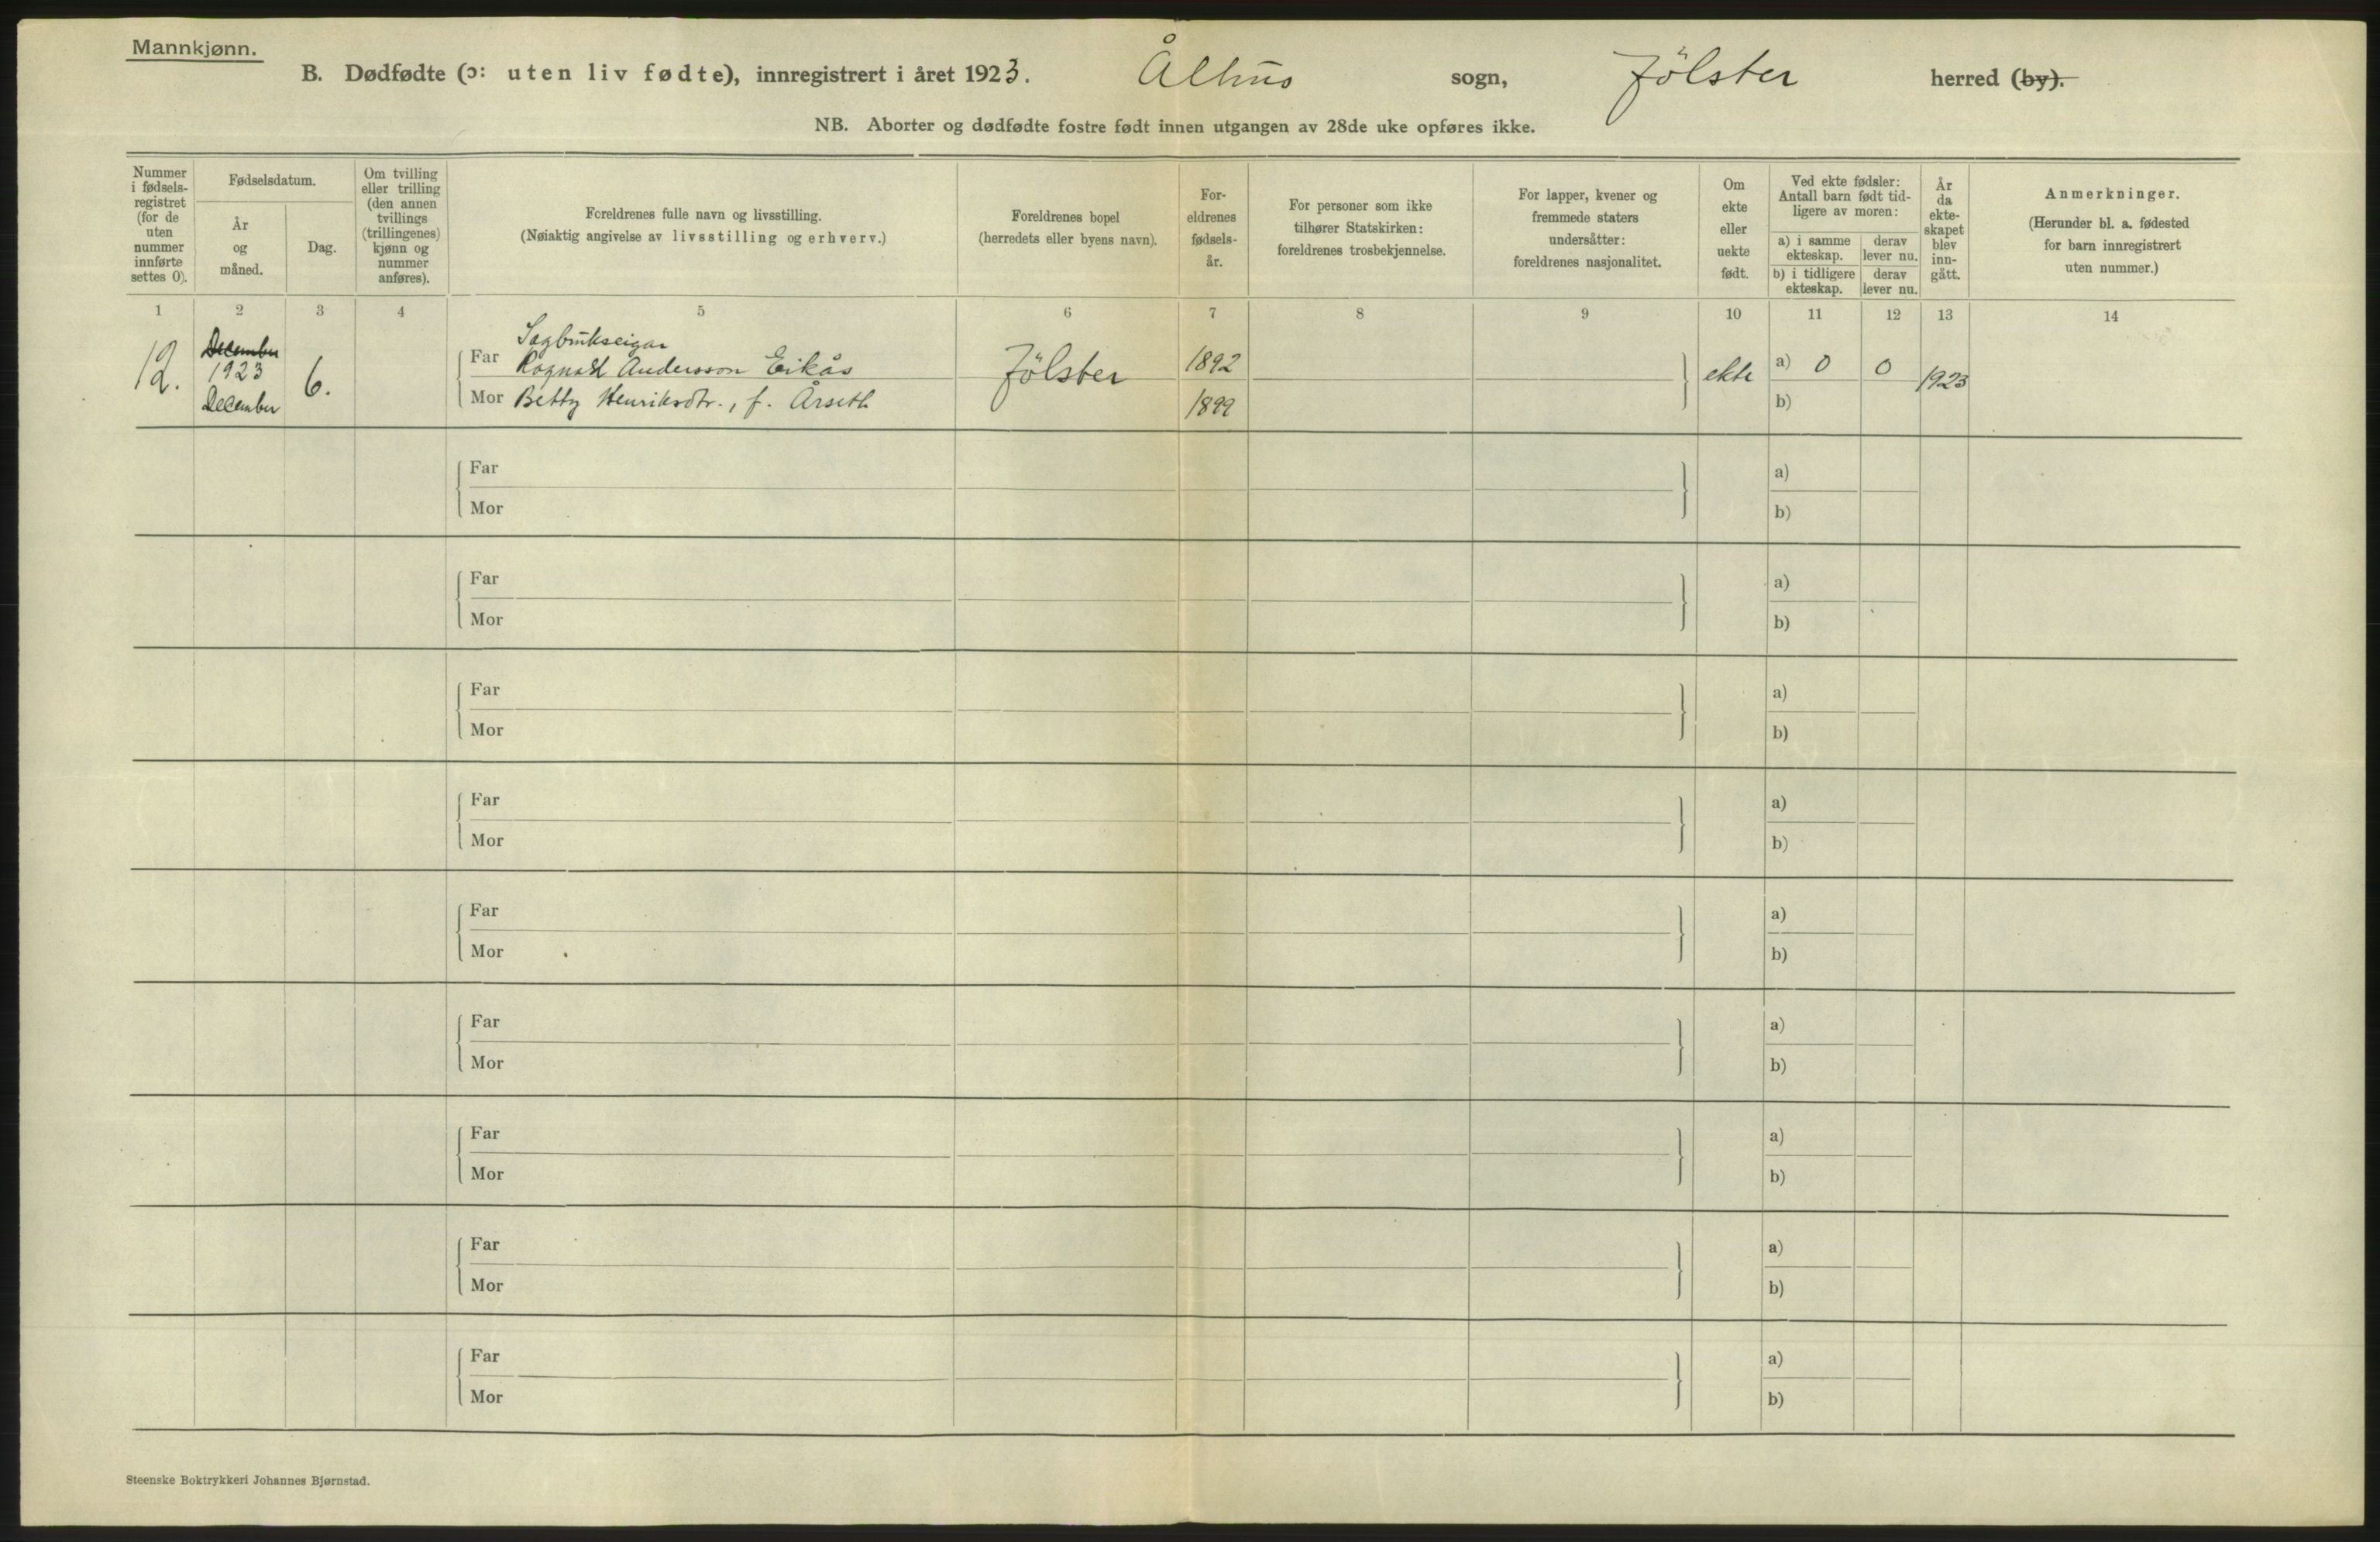 Mannkjønn.
B. Dødfødte (ɔ: uten liv fødte), innregistrert i året 1923. Ålhus sogn, Jölster herred (by).
NB. Aborter og dødfødte fostre født innen utgangen av 28de uke opføres ikke.
Nummer
i fødsels-
registret
(for de
uten
nummer
innførte
settes 0).
Fødselsdatum.
År
og
måned.
Dag.
Om tvilling
eller trilling
(den annen
tvillings
(trillingenes)
kjønn og
nummer
anføres).
Foreldrenes fulle navn og livsstilling.
(Nøiaktig angivelse av livsstilling og erhverv.)
Foreldrenes bopel
(herredets eller byens navn).
For-
eldrenes
fødsels-
år.
For personer som ikke
tilhører Statskirken:
foreldrenes trosbekjennelse.
For lapper, kvener og
fremmede staters
undersåtter:
foreldrenes nasjonalitet.
Om
ekte
eller
uekte
født.
Ved ekte fødsler:
Antall barn født tid-
ligere av moren:
a) i samme
ekteskap.
derav
lever nu.
b) i tidligere
ekteskap.
derav
lever nu.
År
da
ekte-
skapet
blev
inn-
gått.
Anmerkninger.
(Herunder bl. a. fødested
for barn innregistrert
uten nummer.)
1 2 3 4 5 6 7 8 9 10 11 12 13 14
12.
December
1923
December
6.
Sagbrukseigar
Far Ragnald Andersson Eikås
Mor Betty Henriksdtr., f. Årseth
Jölster
1892
1899
ekte
a) 0 0
b)
1923
Far a)
Mor b)
Far a)
Mor b)
Far a)
Mor b)
Far a)
Mor b)
Far a)
Mor b)
Far a)
Mor b)
Far a)
Mor b)
Far a)
Mor b)
Far a)
Mor b)
Steenske Boktrykkeri Johannes Bjørnstad.